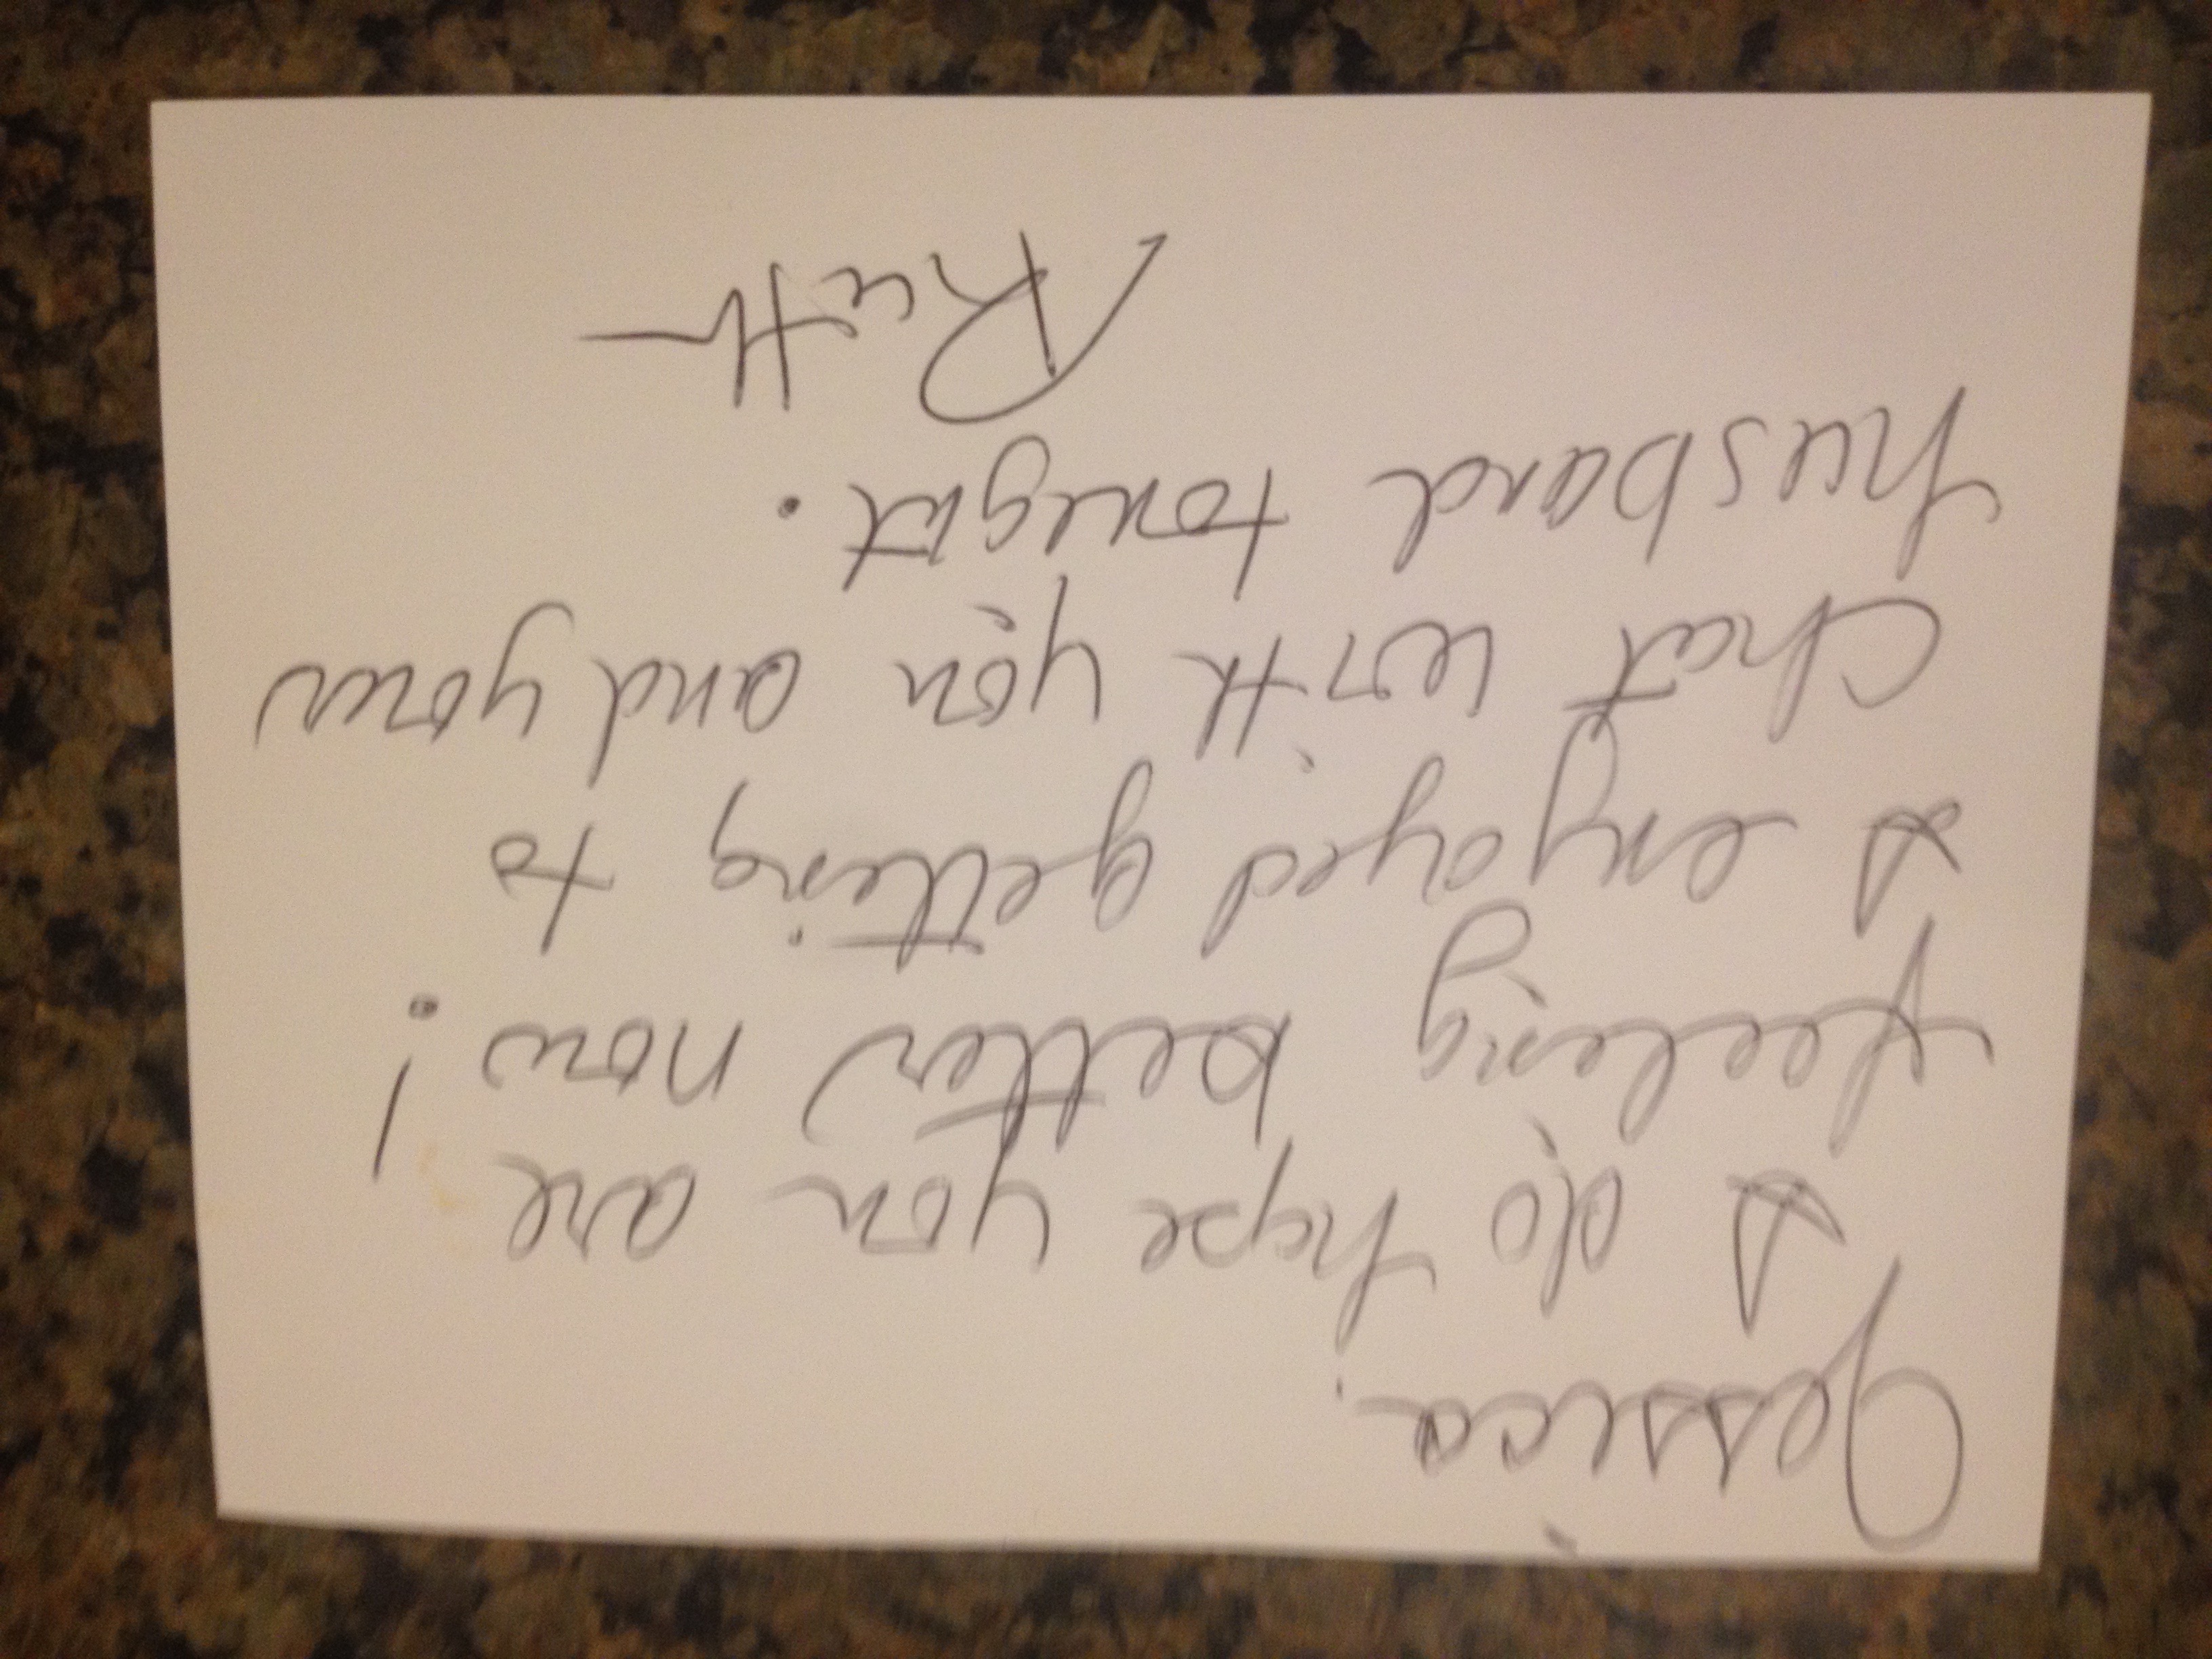 Jessica.
I do hope you are
feeling better now!
I enjoyed getting to
chat with you and your
husband tonight.
Ruth